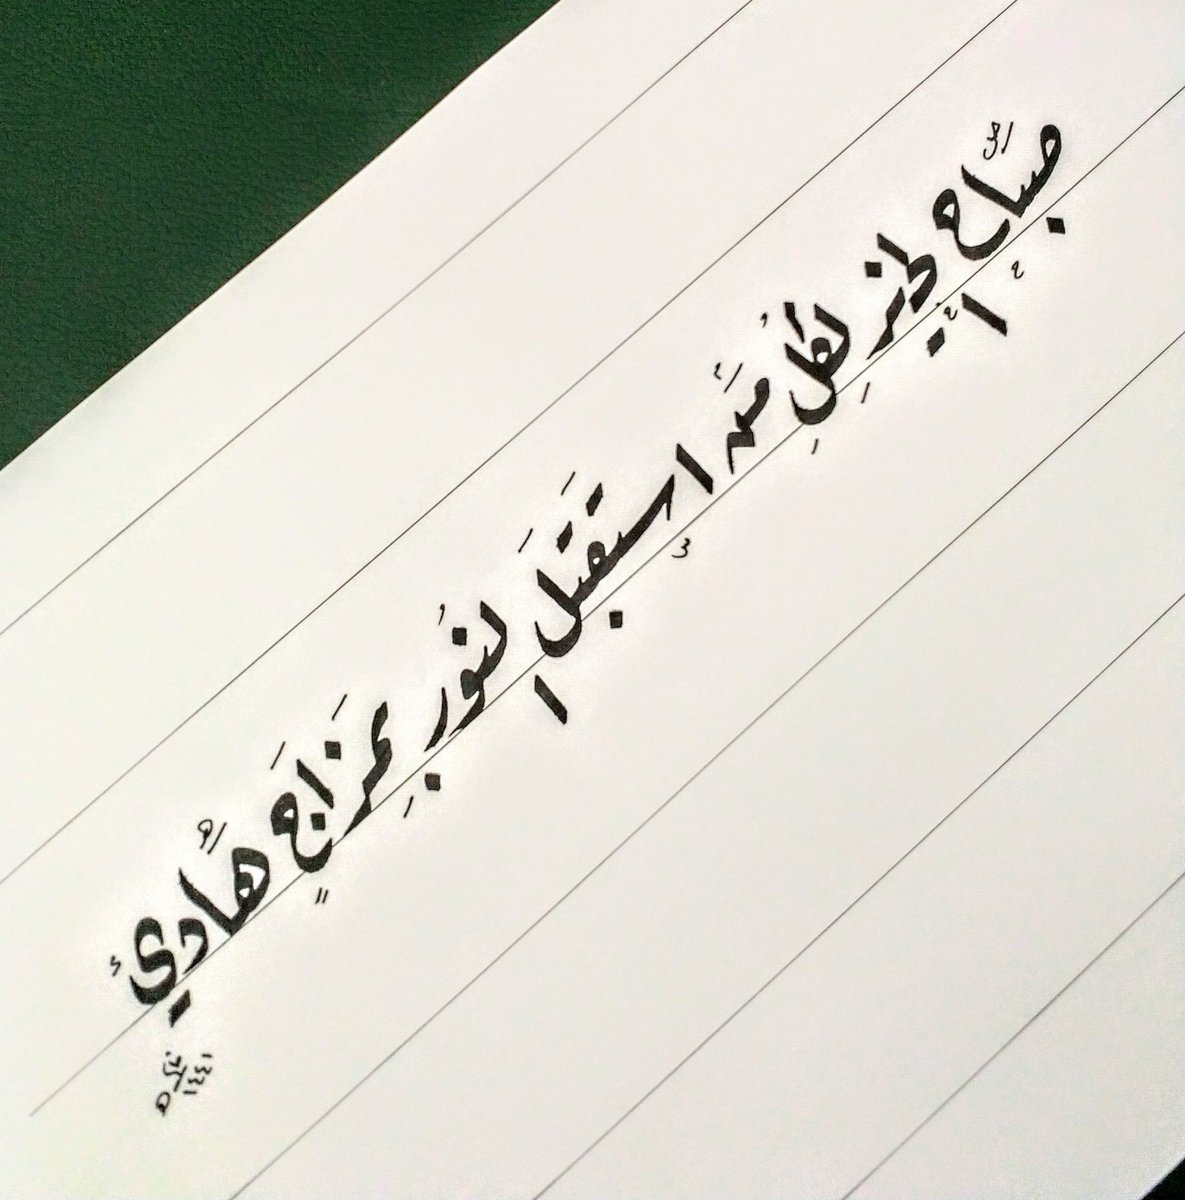 صَبَاحُ الخَيْرِ لِكُلِّ مَنْ اسْتَقْبَلَ النُّورَ بِمِزَاجٍ هَادِئ
١٤٤١